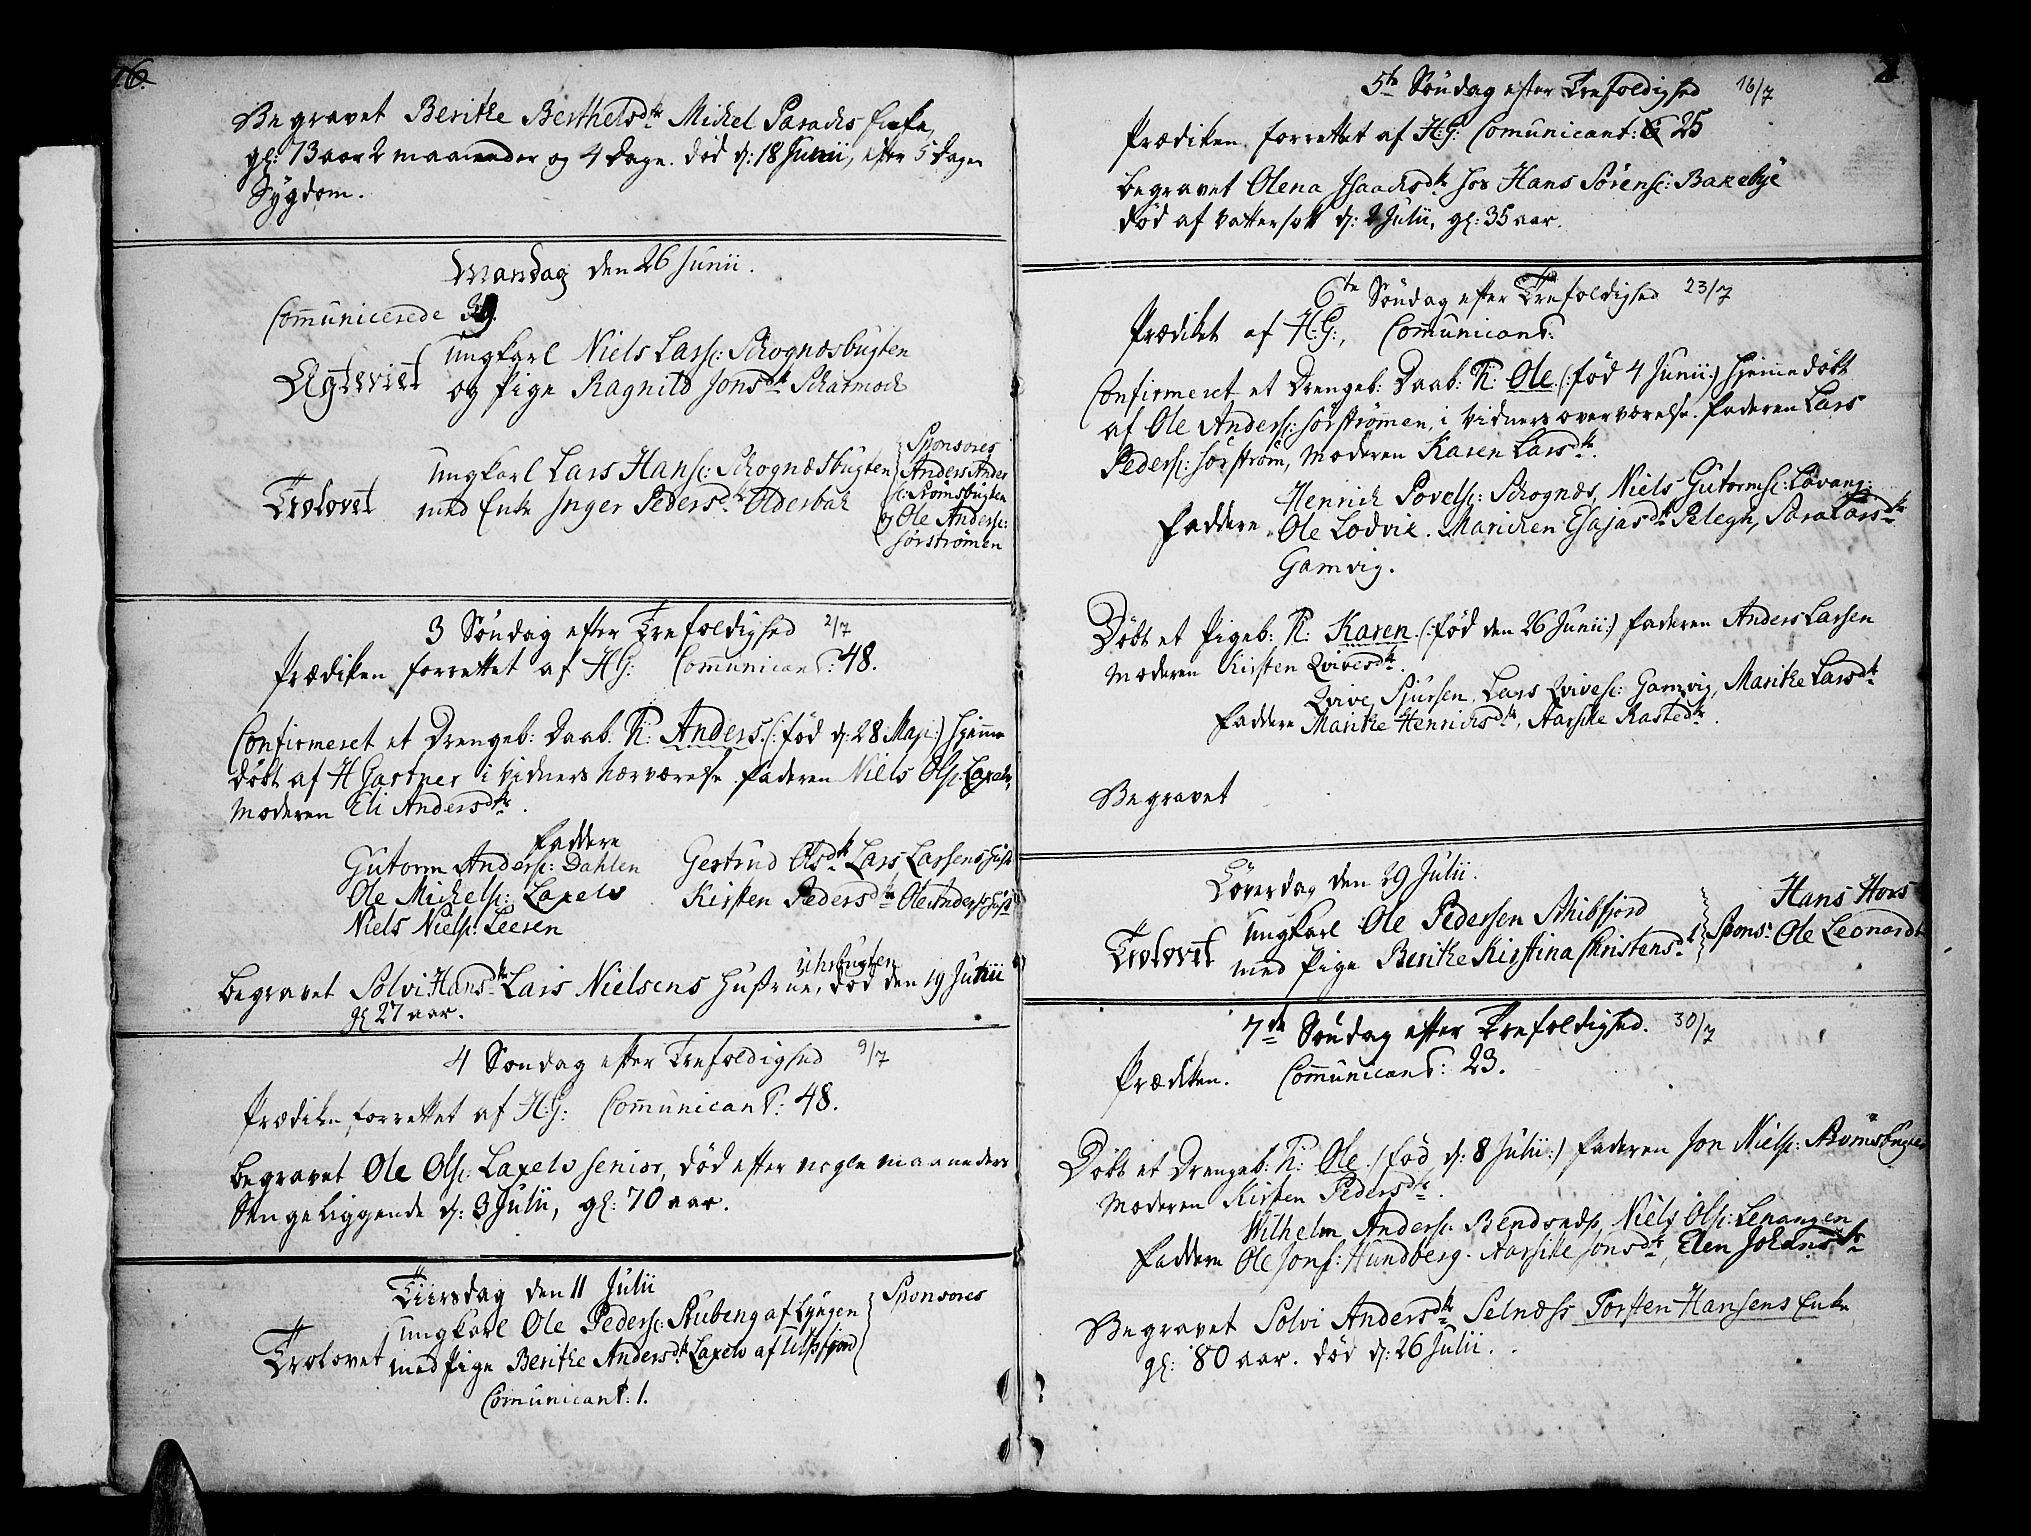 16.
Begravet Berithe Berthelsdtr Michel Paradis Enke,
gl: 73 aar 2 maaneder og 4 Dage. død d: 18 Junii, efter 5 Dages
Sygdom.
Mandag den 26 Junii.
Communicerede 39.
Ungkarl Niels Lars: Schognæsbugten
Egteviet
og Pige Ragnild Jonsdtr Skarmoch
Ungkarl Lars Hans: Schognæsbugten
Trolovet
med Enke Inger Pedersdtr Olderbak
Sponsores
Anders Ander
s: Strömsbugten
og Ole Anders:
Sørströmen
3 Søndag efter Trefoldighed 2/7
Prædiken forrettet af H:G: Communicant: 48.
Confirmeret et Drengeb: Daab. N: Anders (: fød d: 28 Maji:) hjemme
døbt af H Gartner i Vidners hærværelse. Faderen Niels Ols: Laxelv,
Moderen Eli Andersdtr.
Faddere
Gutorm Anders: Dahlen Gertrud Olsdtr Lars Larsens Hust
Ole Michels: Laxelv Kirsten Pedersdtr Ole Anders: Hust
Niels Niels: Leeren
Begravet Solvi Hansdtr Lars Nielsens Hustrue, Uhrbugten død den 19 Junii
gl 27 aar.
4 Søndag efter Trefoldighed 9/7
Prædiken forrettet af H:G: Communicant: 48.
Begravet Ole Ols: Laxelv senior, død efter nogle maaneders
Sengeliggende d: 3 Julii, gl: 70 aar.
Tiirsdag den 11 Julii
Ungkarl Ole Peders: Stubeng af Lyngen
Trolovet
med Pige Berithe Andersdtr Laxelv af Ulfsfjord
Sponsores
Comunicant: 1.
5te Søndag efter Trefoldighed 16/7
Prædiken forrettet af H:G: Comunicant: 25
Begravet Olena Isaachsdtr hos Hans Sørens: Bakebye
død af Vattersott d: 2 Julii, gl: 35 aar.
6te Søndag efter Trefoldighed 23/7
Prædiket af H:G:, Communicant:
Confirmeret et Drengeb: Daab: N: Ole (: fød 4 Junii:) hjemmedøbt
af Ole Anders: Sørstrømmen, i Vidners overværelse. Faderen Lars
Peders: Sørstrøm, Moderen Karen Larsdtr.
Henrich Povels: Schognæs, Niels Gutorms: Løvang:
Faddere Ole Lodvik. Marichen Esajasdtr Pelegh, Sara Larsdtr
Gamvig.
Døbt et Pigeb: N: Karen (: fød den 26 Junii:) Faderen Anders Larsen
Moderen Kirsten Qvivesdtr.
Qvive Sjursen, Lars Qvives: Gamvig, Marithe Larsdtr
Faddere Marithe Henrichsdtr, Aarsille Rastedtr.
Begravet
Løverdag den 29 Julii.
Ungkarl Ole Pedersen Skibfjord
Trolovet
med Pige Berithe Kirstina Christensdtr
Hans Hans
Spons: Ole Leonardt
7de Søndag efter Trefoldighed. 30/7
Prædiken. Communicant: 23.
Døbt et Drengeb: N: Ole (fød d: 8 Julii:) Faderen Jon Niels: Strømsbugten
Moderen Kirsten Pedersdtr.
Wilhelm Anders: Bendsnæs, Niels Ols: Lenangen
Faddere Ole Jons: Hundberg. Aarsille Jonsdtr, Elen Johansdtr
Begravet Solvi Andersdtr Selnæss Torsten Hansens Enke,
gl: 80 aar. død d: 26 Julii.